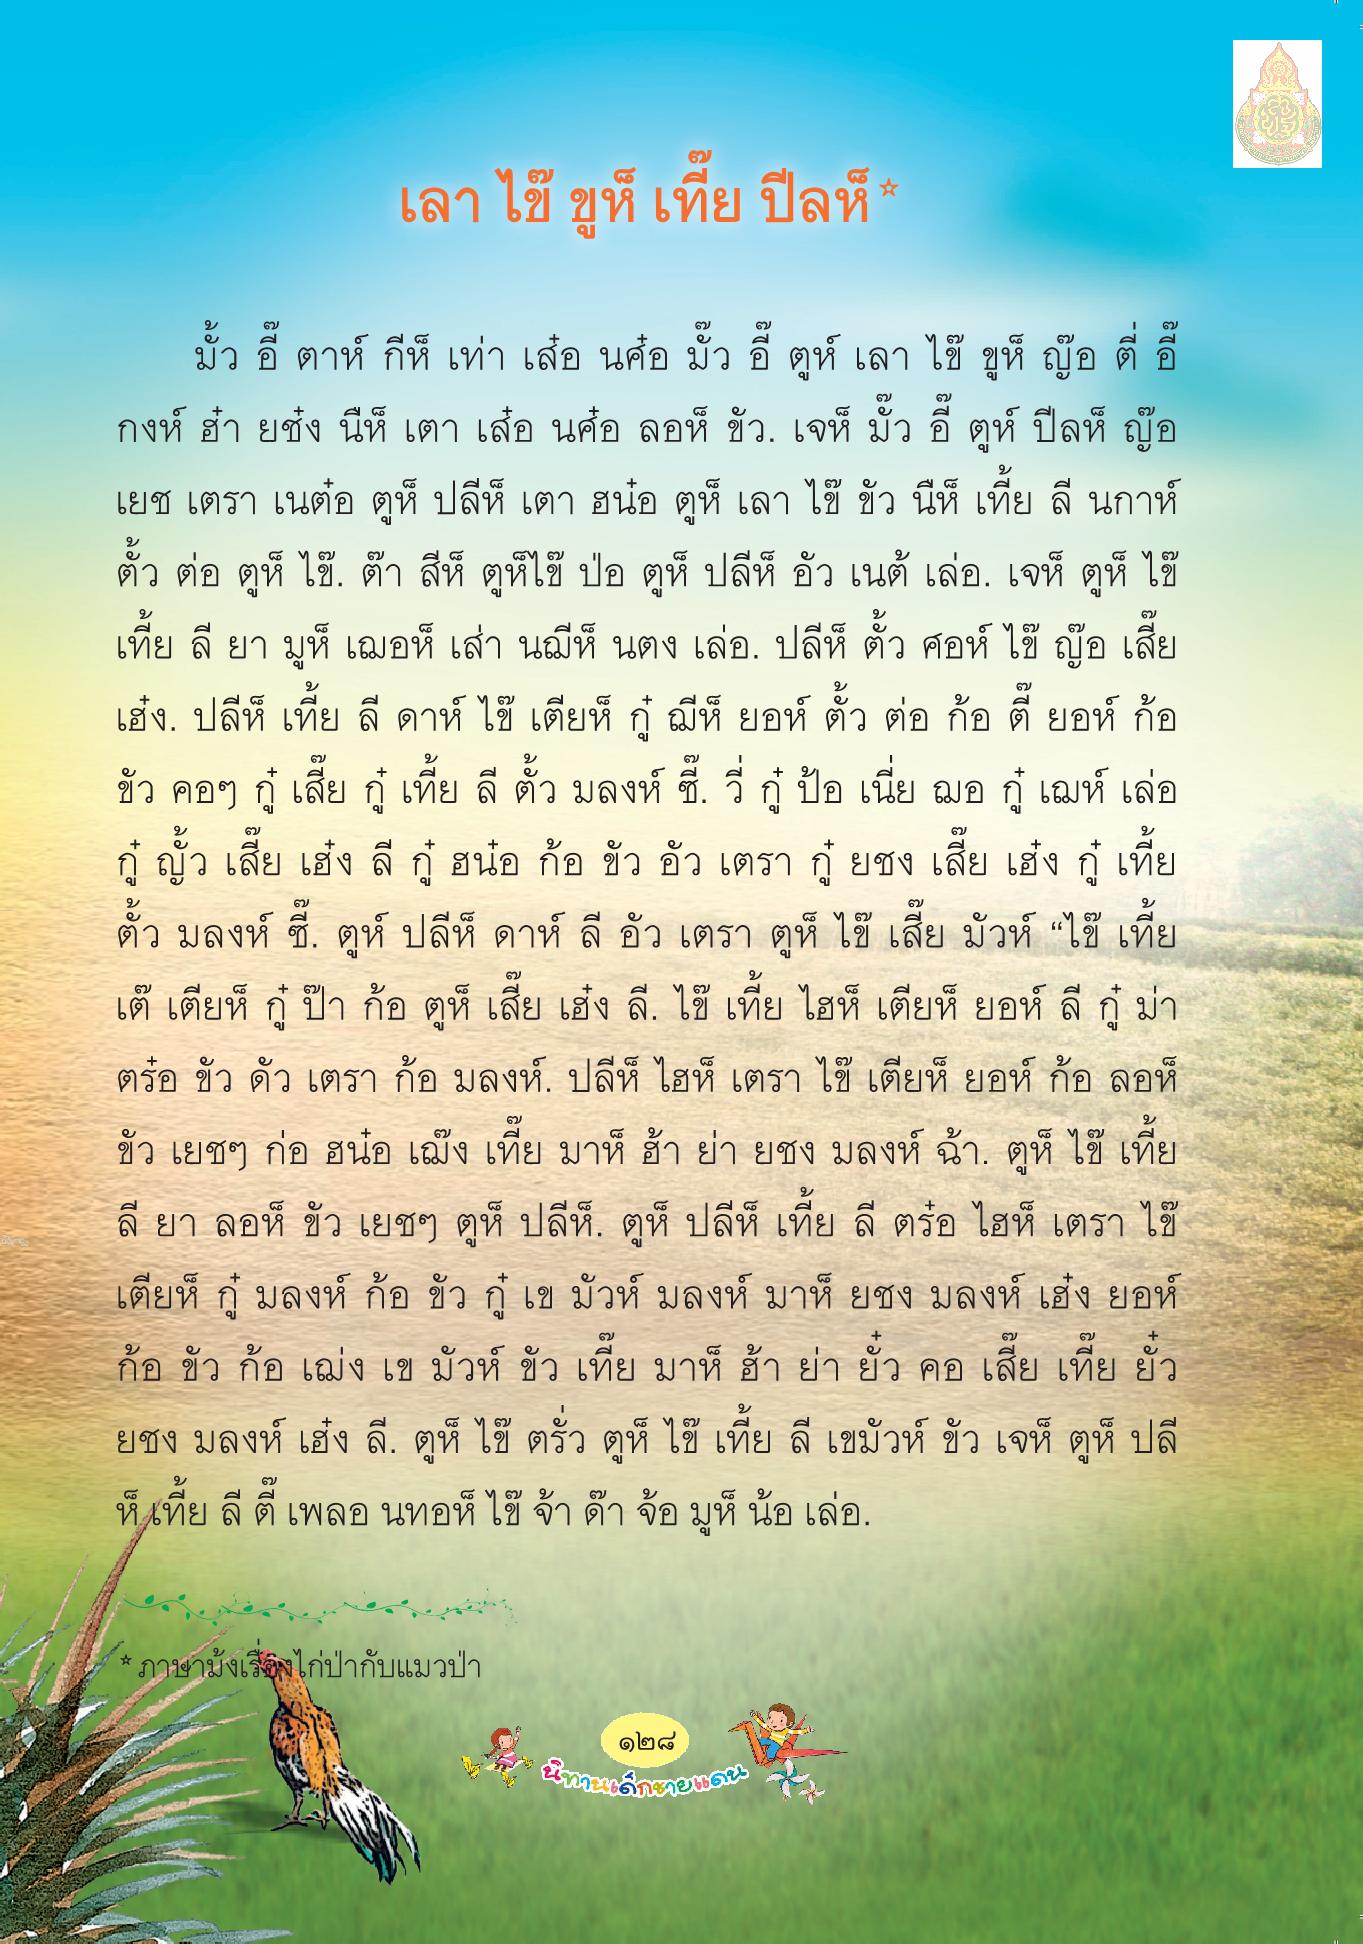 เลา ไข๊ ขูห็ เที๊ย ปีลห็ *
มั้ว อี๊ ตาห์ กีห็ เท่า เส๋อ นศ๋อ มั๊ว อี๊ ตูห์ เลา ไข๊ ขูห็ ญ๊อ ตี่ อี๊
กงห์ ฮ๋า ยช๋ง นืห็ เตา เส๋อ นศ๋อ ลอห็ ขัว. เจห็ มั๊ว อี๊ ตูห์ ปีลห็ ญ๊อ
เยช เตรา เนต๋อ ตูห็ ปลีห็ เตา ฮน๋อ ตูห็ เลา ไข๊ ขัว นืห็ เที้ย ลี นกาห์
ตั้ว ต่อ ตูห็ ไข๊. ต๊า สีห็ ตูห็ไข๊ ป่อ ตูห็ ปลีห็ อัว เนต้ เล่อ. เจห็ ตูห็ ไข๊
เที้ย ลี ยา มูห็ เฌอห็ เส่า นฌีห็ นตง เล่อ. ปลีห็ ตั้ว ศอห์ ไข๊ ญ๊อ เสี๊ย
เฮ๋ง. ปลีห็ เที้ย ลี ดาห์ ไข๊ เตียห็ กู๋ ฌีห็ ยอห์ ตั้ว ต่อ ก้อ ตี๊ ยอห์ ก้อ
ขัว คอๆ กู๋ เสี๊ย กู๋ เที้ย ลี ตั้ว มลงห์ ซี๊. วี่ กู๋ ป้อ เนี่ย ฌอ กู๋ เฌห์ เล่อ
กู๋ ญั้ว เสี๊ย เฮ๋ง ลี กู๋ ฮน๋อ ก้อ ขัว อัว เตรา กู๋ ยชง เสี๊ย เฮ๋ง กู๋ เที้ย
ตั้ว มลงห์ ซี๊. ตูห์ ปลีห็ ดาห์ ลี อัว เตรา ตูห็ ไข๊ เสี๊ย มัวห์ “ไข๊ เที้ย
เต๊ เตียห็ กู๋ ป๊า ก้อ ตูห็ เสี๊ย เฮ๋ง ลี. ไข๊ เที้ย ไฮห็ เตียห็ ยอห์ ลี กู๋ ม่า
ตร๋อ ขัว ดัว เตรา ก้อ มลงห์. ปลีห็ ไฮห็ เตรา ไข๊ เตียห็ ยอห์ ก้อ ลอห็
ขัว เยชๆ ก่อ ฮน๋อ เฌ๊ง เที๊ย มาห็ ฮ้า ย่า ยชง มลงห์ ฉ้า. ตูห็ ไข๊ เที้ย
ลี ยา ลอห็ ขัว เยชๆ ตูห็ ปลีห็. ตูห็ ปลีห็ เที้ย ลี ตร๋อ ไฮห็ เตรา ไข๊
เตียห็ กู๋ มลงห์ ก้อ ขัว กู๋ เข มัวห์ มลงห์ มาห็ ยชง มลงห์ เฮ๋ง ยอห์
ก้อ ขัว ก้อ เฌ่ง เข มัวห์ ขัว เที๊ย มาห็ ฮ้า ย่า ยั๋ว คอ เสี๊ย เที๊ย ยั๋ว
ยชง มลงห์ เฮ๋ง ลี. ตูห็ ไข๊ ตรั่ว ตูห็ ไข๊ เที้ย ลี เขมัวห์ ขัว เจห็ ตูห็ ปลี
ห็ เที้ย ลี ตี๊ เพลอ นทอห็ ไข๊ จ้า ด๊า จ้อ มูห็ น้อ เล่อ.
* ภาษาม้งเรื่องไก่ป่ากับแมวป่า
๑๒๘
นิทานเด็กชายแดน